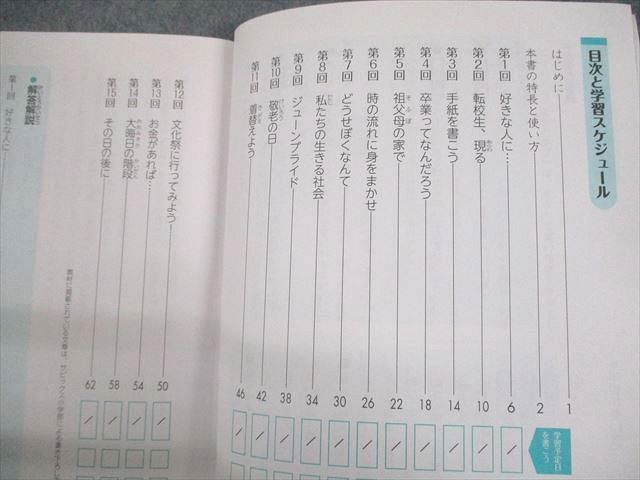 目次と学習スケジュール
はじめに 1
本書の特長と使い方 2
第1回 好きな人に… 6
第2回 転校生、現る 10
第3回 手紙を書こう 14
第4回 卒業ってなんだろう 18
第5回 祖父母の家で 22
第6回 時の流れに身をまかせ 26
第7回 どうせぼくなんて 30
第8回 私たちの生きる社会 34
第9回 ジューンブライド 38
第10回 敬老の日 42
第11回 着替えよう 46
学習予定日を書こう
第12回 文化祭に行ってみよう! 50
第13回 お金があれば… 54
第14回 大晦日の階段 58
第15回 その日の後に 62
教材に掲載されている文章は、サピックスの学習
解答解説
第1回 好きな人に